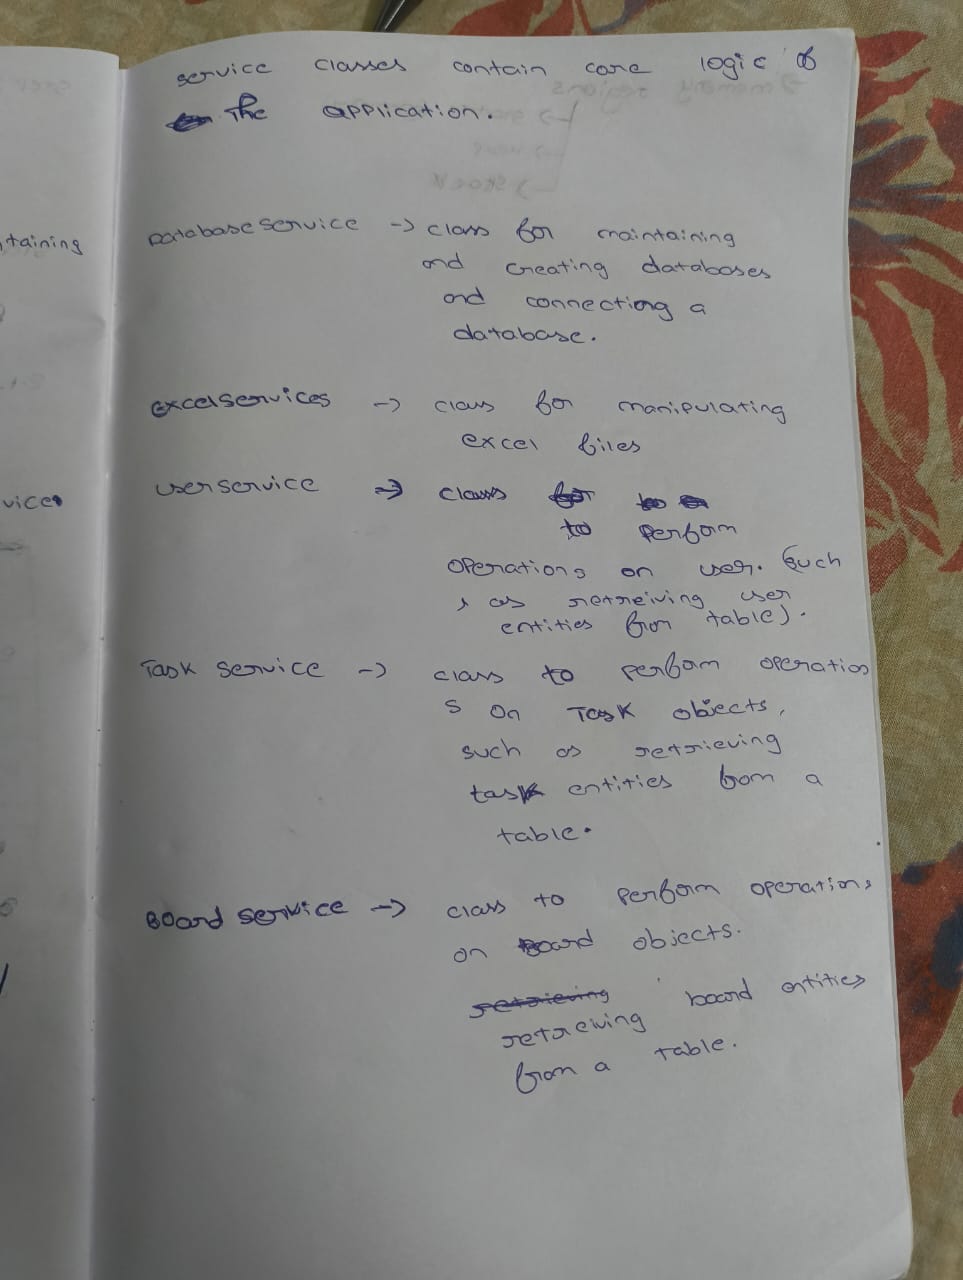 service classes contain core logic of
the application.
Databaseservice -> class for maintaining
and creating databases
and connecting a
database.
excelservices -> class for manipulating
excel files
userservice => class
to perform
operations on user. (such
as retreiving user
entities from table).
Task service -> class to perform operation
s on Task objects,
such as retrieving
task entities from a
table.
Board service -> class to perform operations
on Board objects.
retreiving board entities
from a table.
taining
vice